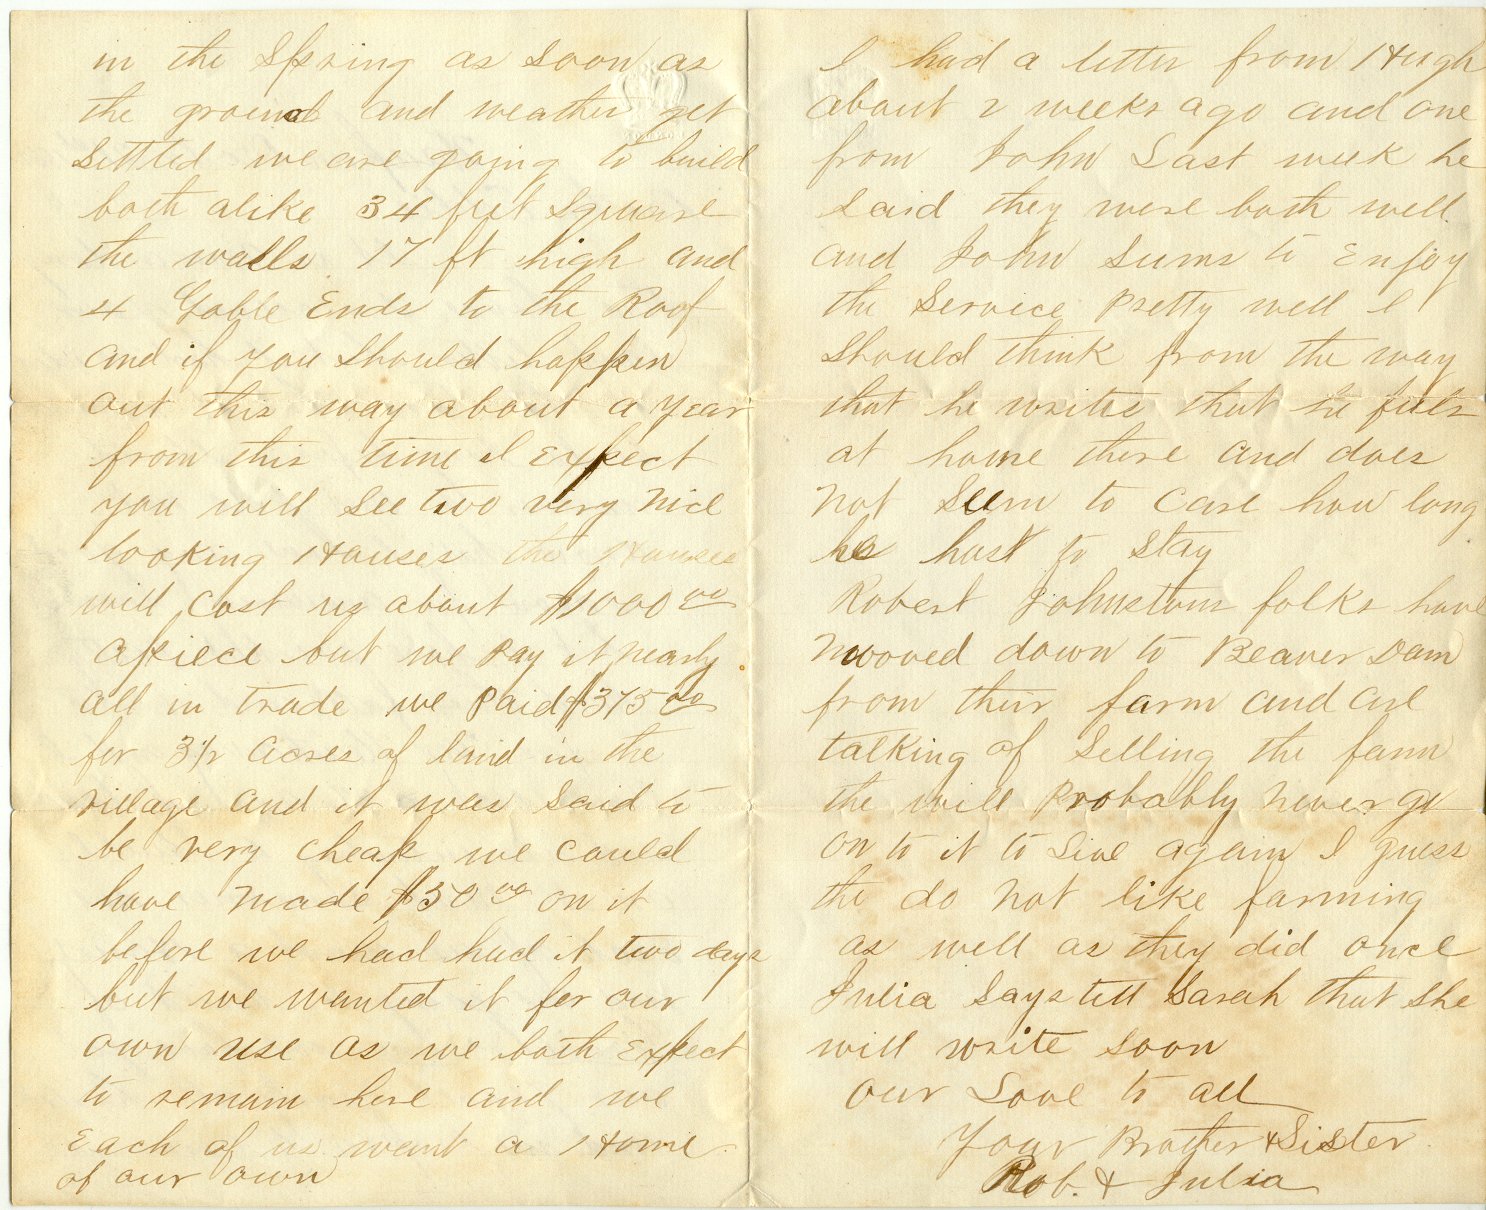 in the Spring as soon as
the ground and weather get
Settled we are going to build
both alike 34 feet Square
the walls 17 ft high and
4 Gable Ends to the Roof
and if you should happen
out this way about a year
from this time I expect
you will see two very nice
looking Houses the Houses
will cost us about $1000 00
apiece but we pay it nearly
all in trade we paid $375 00
for 3 1/2 Acres of land in the
village and it was said to
be very cheap we could
have made $50 00 on it
before we had had it two days
but we wanted it for our
own use as we both Expect
to remain here and we
Each of us want a Home
of our own
I had a letter from Hugh
about 2 weeks ago and one
from John Last week he
said they were both well
and John Seems to Enjoy
the Service pretty well I
should think from the way
that he writes that he feels
at home there and does
not seem to care how long
he hast to stay
Robert Johnstons folks have
mooved down to Beaver Dam
from their farm and are
talking of Selling the farm
the will probably never go
on to it to Live again I guess
the do not like farming
as well as they did once
Julia says tell Sarah that she
will write soon
our Love to all
Your Brother & Sister
Rob. & Julia